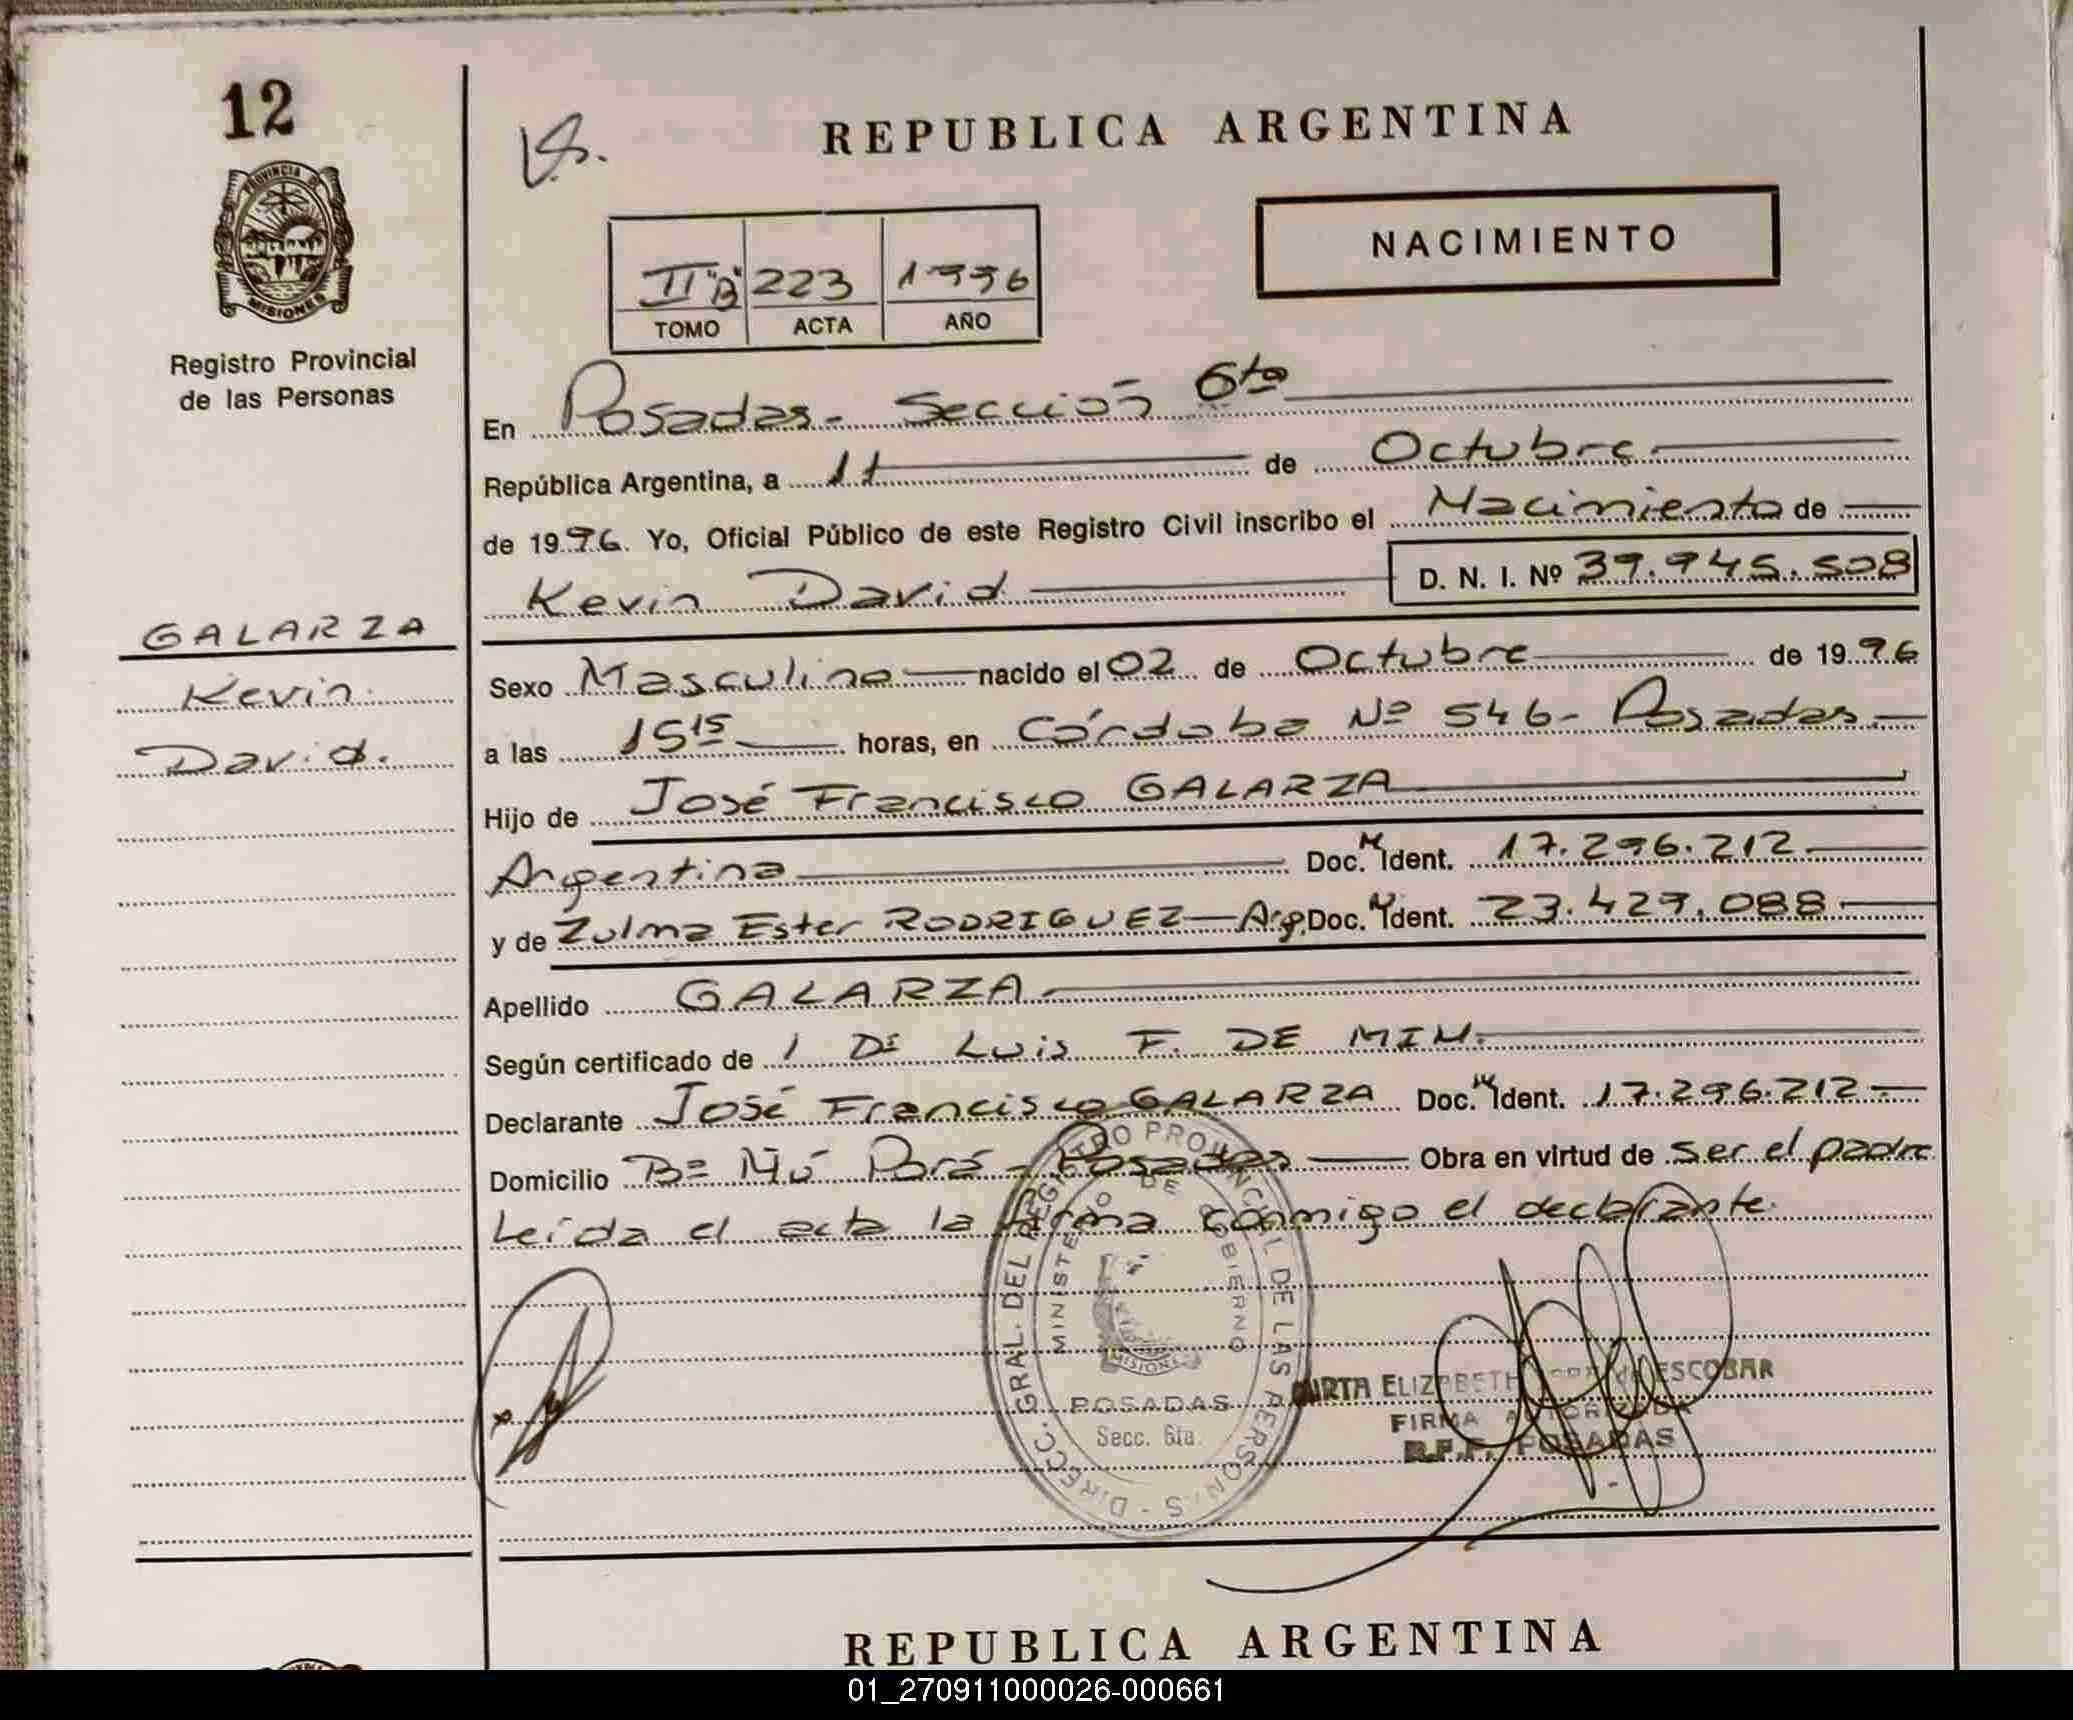 12
PROVINCIA DE
MISIONES
Registro Provincial
de las Personas
GALARZA
Kevin
David.
REPUBLICA ARGENTINA
NACIMIENTO
II "B" 223 1996
TOMO ACTA AÑO
En Posadas - Sección 6ta
República Argentina, a 11 de Octubre
de 1996. Yo, Oficial Público de este Registro Civil inscribo el Nacimiento de
Kevin David D. N. I. Nº 39.945.508
Sexo Masculino nacido el 02 de Octubre de 1996
a las 15 15 horas, en Córdoba Nº 546 - Posadas
Hijo de José Francisco GALARZA
Argentina Doc. Ident. 17.296.212
y de Zulma Ester RODRIGUEZ - Arg. Doc. Ident. 23.429.088
Apellido GALARZA
Según certificado de Dr Luis F. DE MIN.
Declarante José Francisco GALARZA Doc. Ident. 17.296.212
Domicilio Bº Ñú Porá - Posadas Obra en virtud de ser el padre
Leída el acta la firma conmigo el declarante.
DIRECC. GRAL. DEL REGISTRO PROVINCIAL DE LAS PERSONAS
MINISTERIO DE GOBIERNO
MISIONES
POSADAS
Secc. 6ta.
MIRTA ELIZABETH ESCOBAR
FIRMA AUTORIZADA
R.P.P. POSADAS
REPUBLICA ARGENTINA
01_270911000026-000661